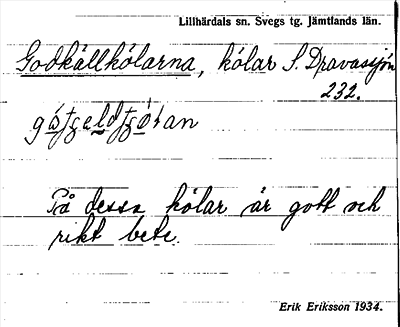 Lillhärdals sn. Svegs tg. Jämtlands län.
Godkällkölarna, kölar S. Dravasjön
232.
På dessa kölar är gott och
rikt bete.
Erik Eriksson 1934.